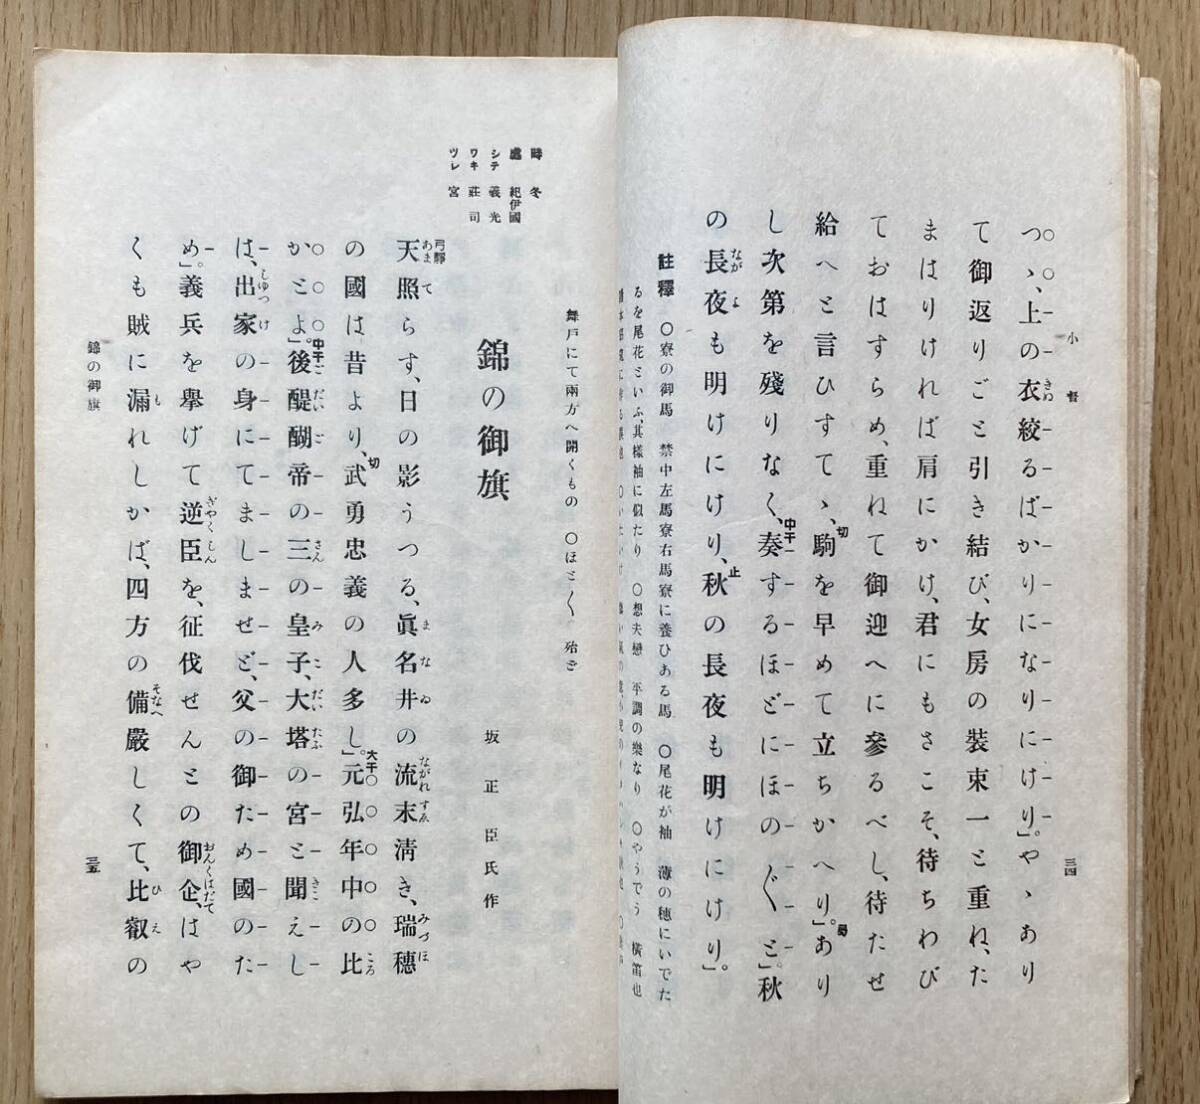 小督
三四
つゝ、上の衣絞るばかりになりにけり」。やゝあり
て御返りごと引き結び、女房の裝束一と重ね、た
まはりければ肩にかけ、君にもさこそ、待ちわび
ておはすらめ、重ねて御迎へに參るべし、待たせ
給へと言ひすてゝ、駒を早めて立ちかへり」。あり
し次第を殘りなく、奏するほどにほの〴〵と」。秋
の長夜も明けにけり、秋の長夜も明けにけり」。
註釋 〇寮の御馬 禁中左馬寮右馬寮に養ひある馬 〇尾花が袖 薄の穂にいでた
るを尾花といふ、其樣袖に似たり 〇想夫戀 平調の樂なり 〇やうでう 橫笛也
舞戸にて兩方へ開くもの 〇ほと〳〵 殆き
錦の御旗
坂正臣氏作
時 冬
處 紀伊國
シテ 義光
ワキ 莊司
ツレ 宮
天照らす、日の影うつる、眞名井の流末淸き、瑞穗
の國は昔より、武勇忠義の人多し」。元弘年中の比
かとよ」。後醍醐帝の三の皇子、大塔の宮と聞えし
は、出家の身にてましませど、父の御ため國のた
め」。義兵を擧げて逆臣を、征伐せんとの御企、はや
くも賊に漏れしかば、四方の備嚴しくて、比叡の
錦の御旗
三五